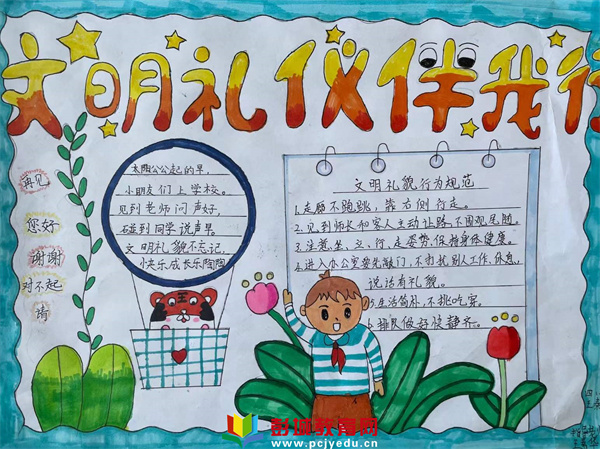 文明礼仪伴我行
再见
您好
谢谢
对不起
请
太阳公公起的早，
小朋友们上学校。
见到老师问声好，
碰到同学说声早。
文明礼貌不忘记，
快乐成长乐陶陶
文明礼貌行为规范
1.走廊不跑跳，靠右侧行走。
2.见到师长和客人主动让路，不围观尾随。
3.注意坐、立、行、走姿势，保持身体健康。
4.进入办公室要先敲门，不打扰别人工作、休息，
说话有礼貌。
5.生活简朴，不挑吃穿。
6.排队做好快静齐。
彭城教育网
www.pcjyedu.cn